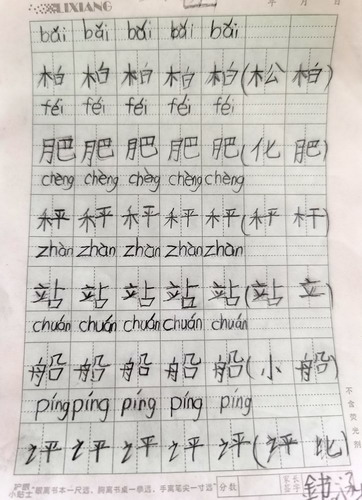 LIXIANG 年 月
bǎi bǎi bǎi bǎi bǎi
柏 柏 柏 柏 柏(松 柏)
féi féi féi féi féi
肥 肥 肥 肥 肥(化 肥)
chèng chèng chèng chèng chèng
秤 秤 秤 秤 秤(秤 杆)
zhàn zhàn zhàn zhàn zhàn
站 站 站 站 站(站 立)
chuán chuán chuán chuán chuán
船 船 船 船 船(小 船)
píng píng píng píng píng
评 评 评 评 评(评 比)
不含荧光剂
护眼小贴士 "眼离书本一尺远、胸离书桌一拳远、手离笔尖一寸远" 分数 家长签字